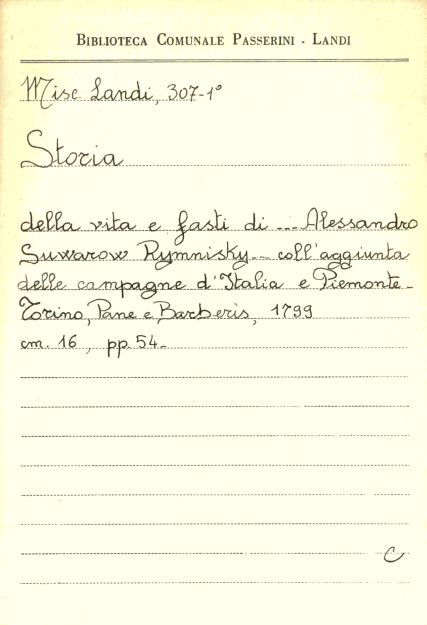 BIBLIOTECA COMUNALE PASSERINI - LANDI
Misc. Landi, 307-1°
Storia
della vita e fasti di ... Alessandro
Suwarow Rymnisky... coll'aggiunta
delle campagne d'Italia e Piemonte-
Torino, Pane e Barberis, 1799
cm. 16, pp. 54-
C